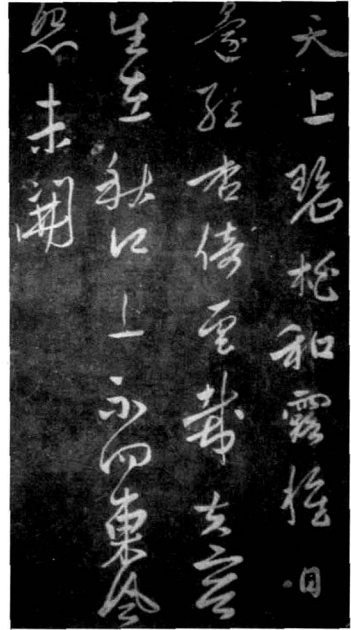 天上碧桃和露種日
邊紅杏倚雲栽芙蓉
生在秋江上不向東風
怨未開